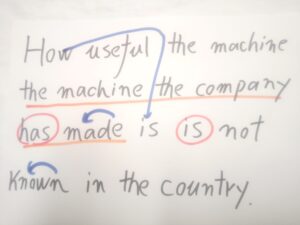 How useful the machine
the machine the company
has made is is not
known in the country.